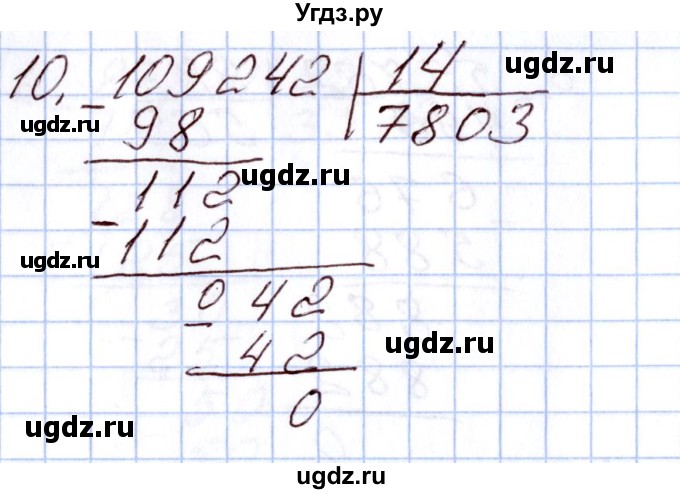 Угдз.ру
10. - 109242 | 14
ugdz.ru
ugdz.ru
98
7803
ugdz.ru
112
- 112
ugdz.ru
- 042
42
ugdz.ru
0
ugdz.ru
ugdz.ru